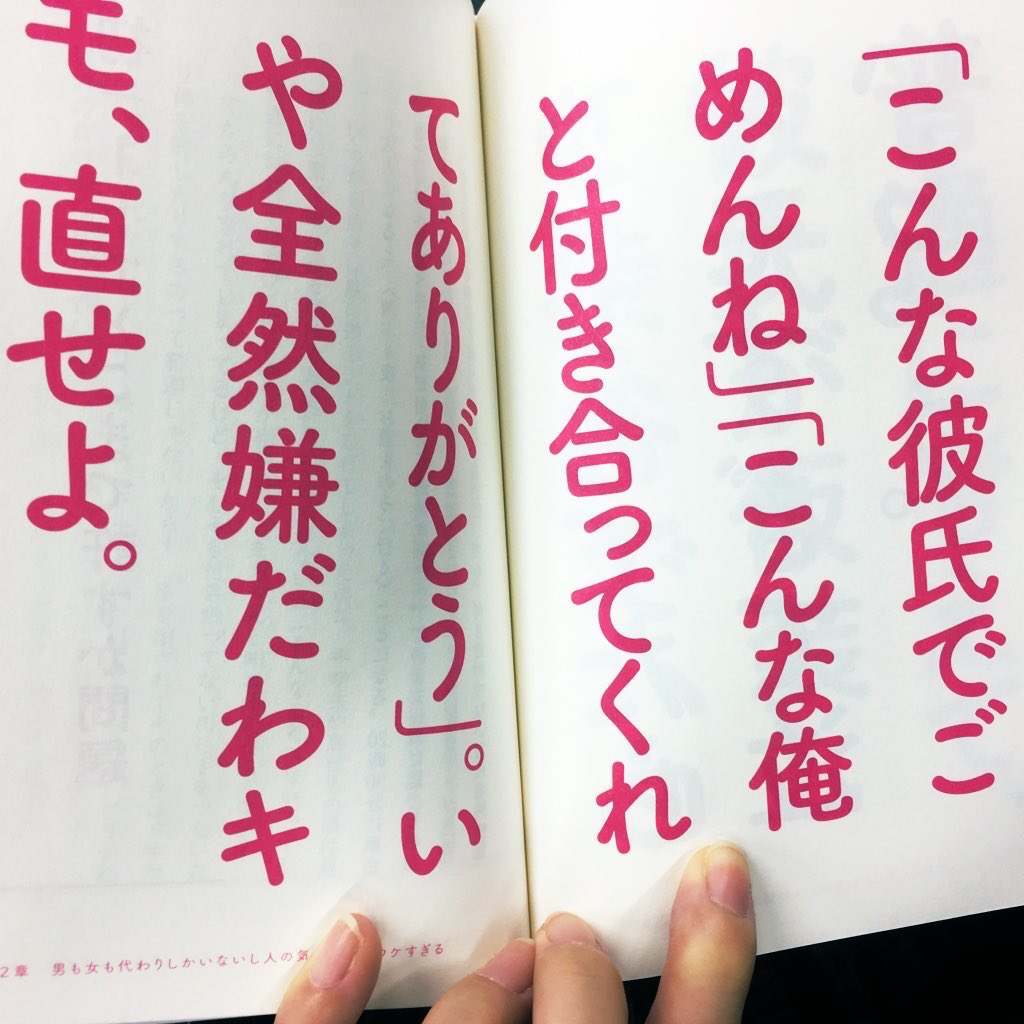 「こんな彼氏でご
めんね」「こんな俺
と付き合ってくれ
てありがとう」。い
や全然嫌だわキ
モ、直せよ。
2章 男も女も代わりしかいないし人の気 ウケすぎる